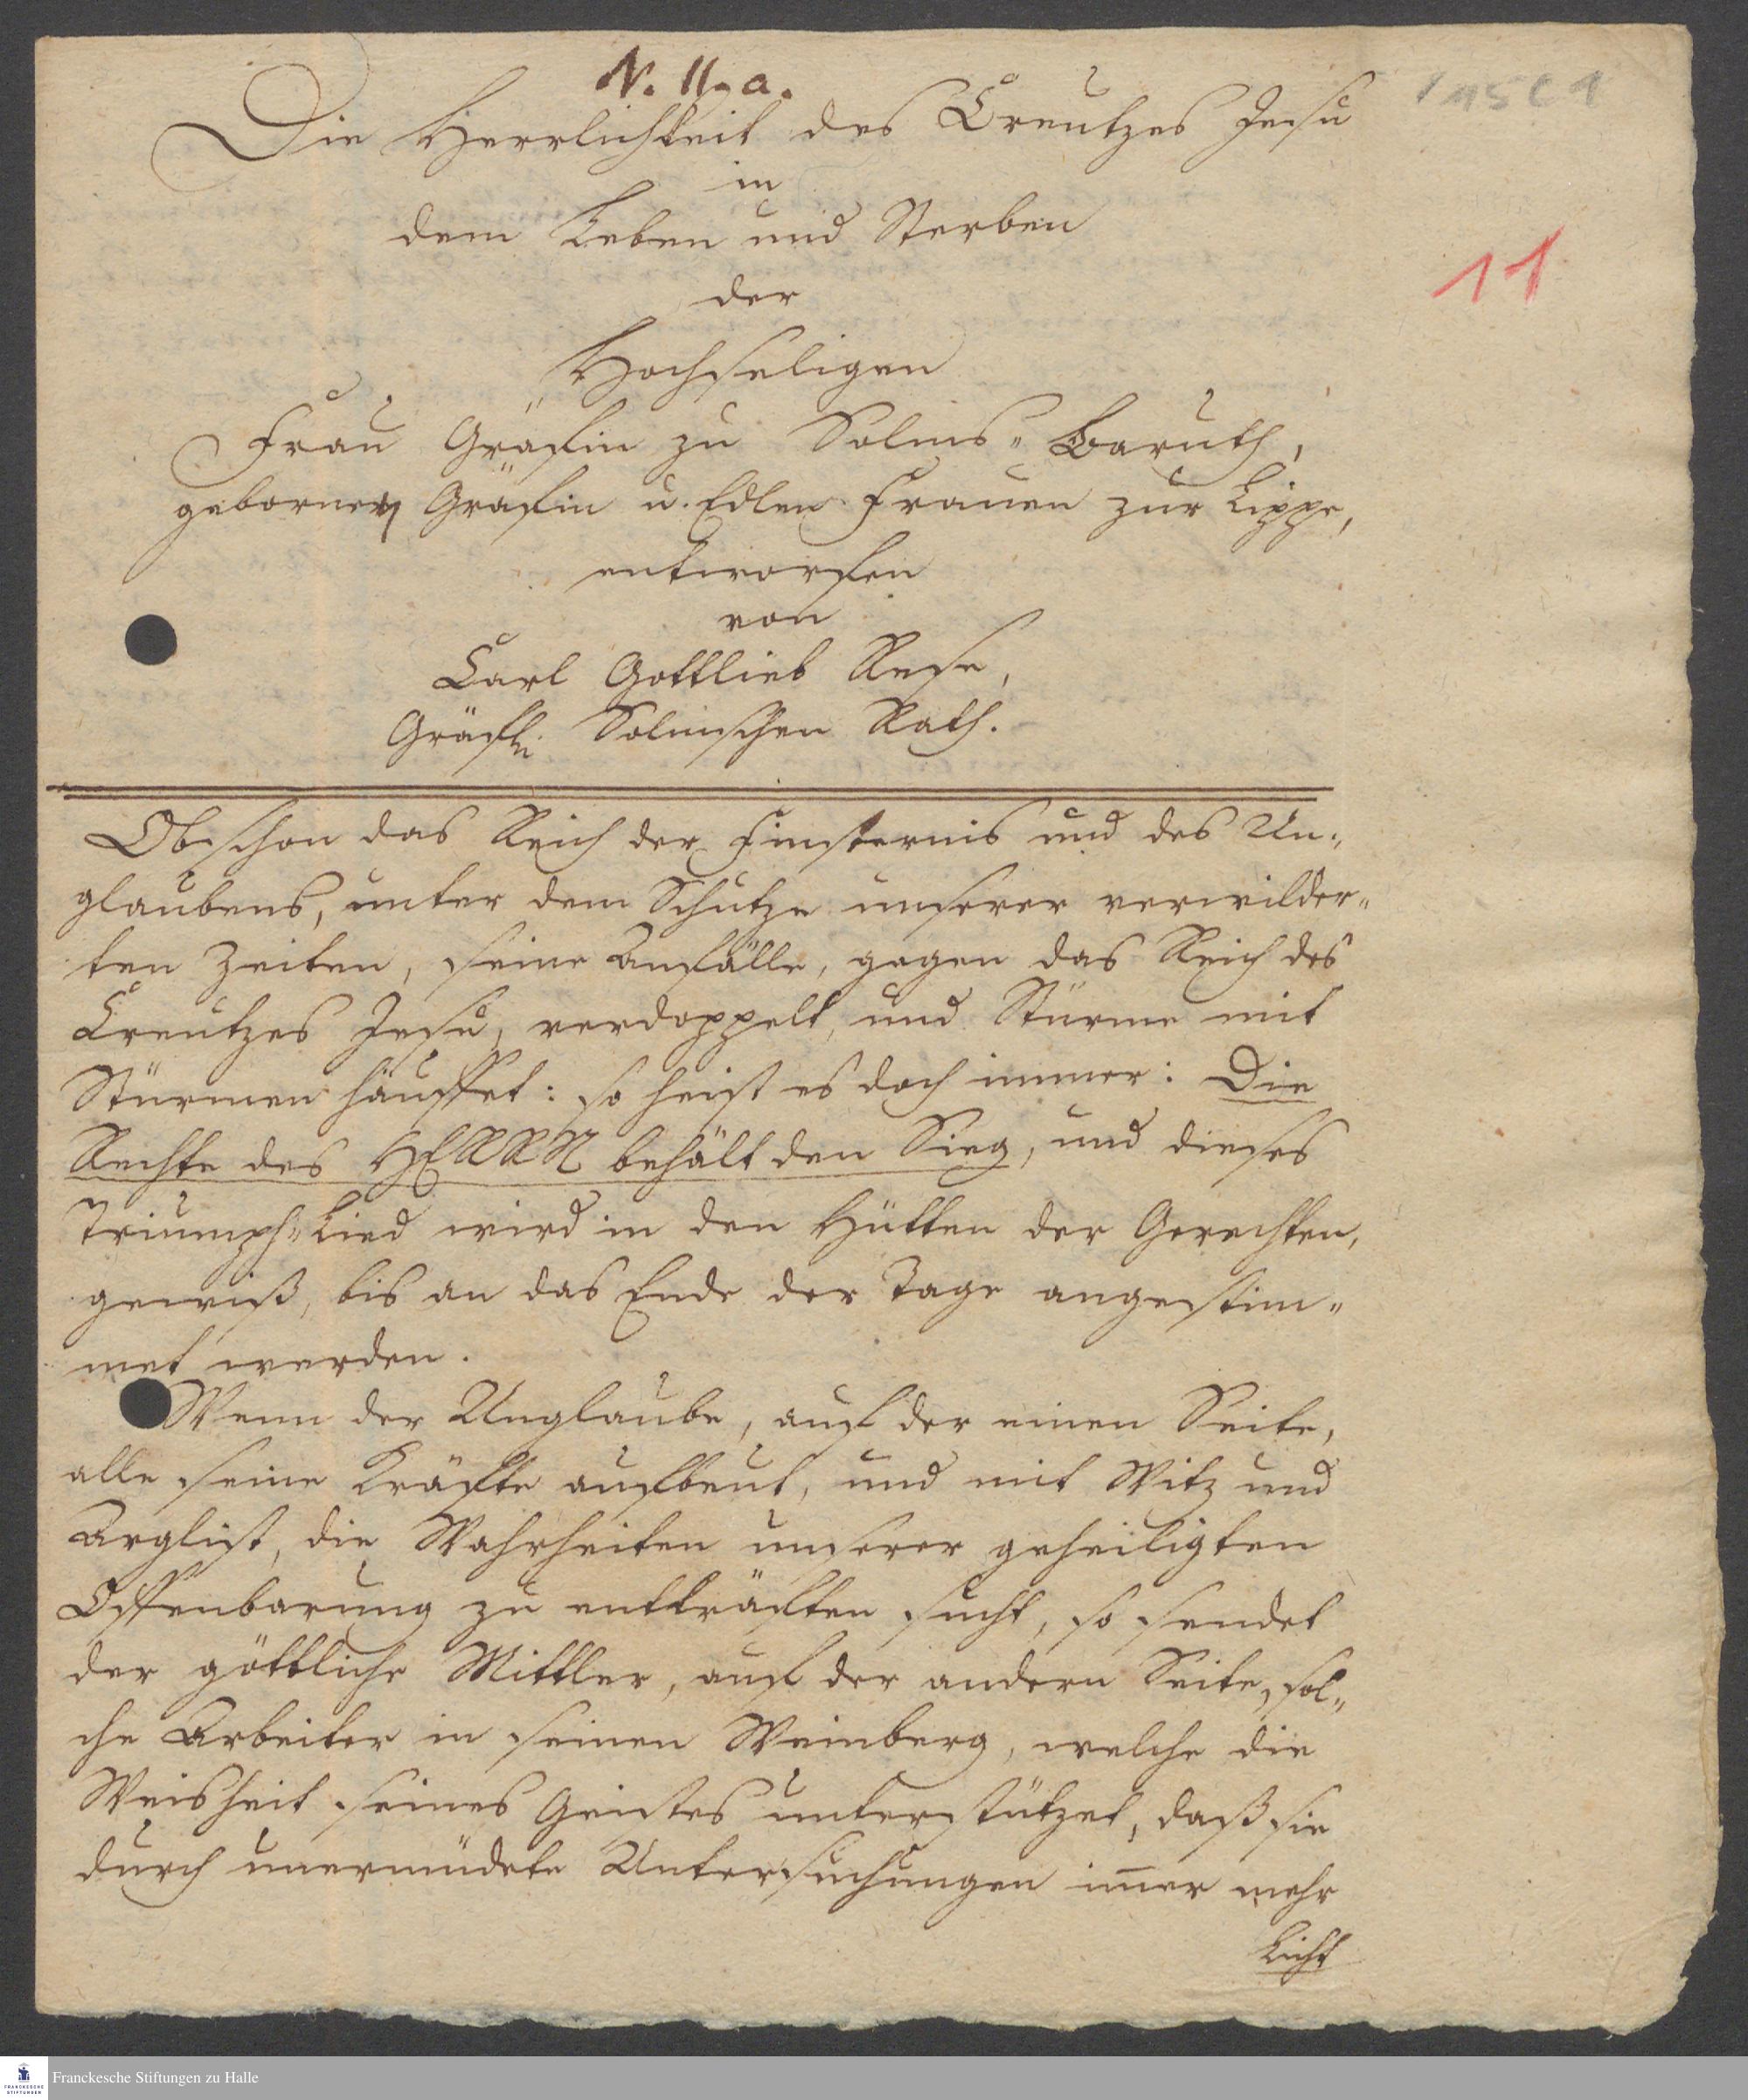 N. II. a.
Die Herrlichkeit des Creutzes Jesu
in
dem Leben und Sterben
der
Hochseligen
Frau Gräfin zu Solms-Baruth,
gebornen Gräfin u. Edlen Frauen zur Lippe,
entworfen
von
Carl Gottlieb Rese,
Gräfl. Solmischen Rath.
11
Obschon das Reich der Finsternis und des Un-
glaubens, unter dem Schutze unserer verwilder-
ten Zeiten, seine Anfälle, gegen das Reich des
Creutzes Jesu, verdoppelt, und Stürme mit
Stürmen häuffet: so heist es doch immer: Die
Rechte des HERRN behält den Sieg, und dieses
Triumph-Lied wird in den Hütten der Gerechten,
gewiß, bis an das Ende der Tage angestim-
met werden.
Wenn der Unglaube, auf der einen Seite,
alle seine Kräfte aufbeut, und mit Witz und
Arglist, die Wahrheiten unserer geheiligten
Offenbarung zu entkräften sucht, so sendet
der göttliche Mittler, auf der andern Seite, sol-
che Arbeiter in seinen Weinberg, welche die
Weisheit seines Geistes unterstützet, daß sie
durch unermüdete Untersuchungen im̄er mehr
Licht
FRANCKESCHE
STIFTUNGEN
Franckesche Stiftungen zu Halle